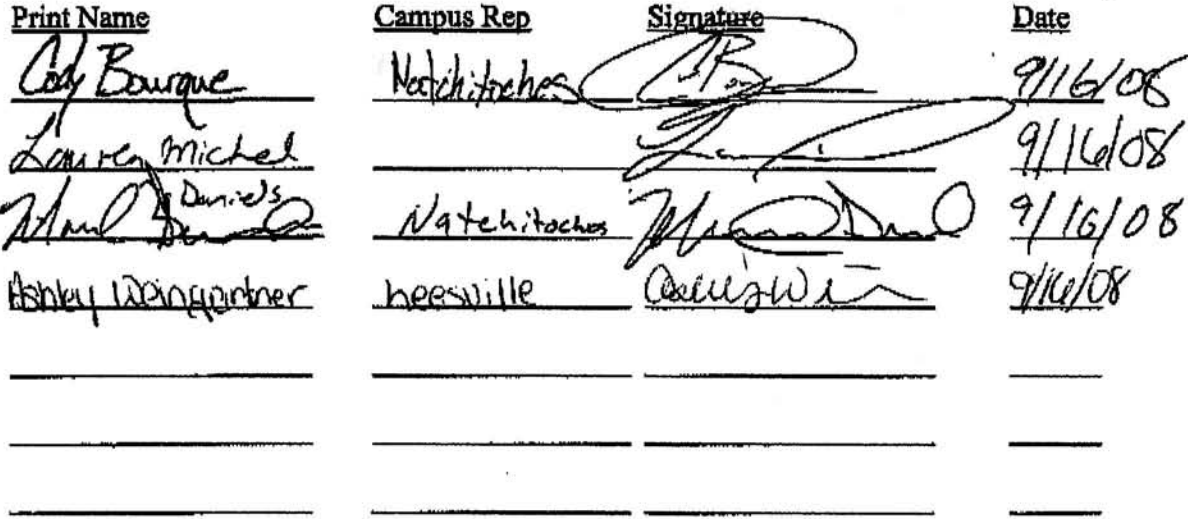 Print Name Campus Rep Signature Date
Cody Bourque Natchitoches 9/16/08
Lauren Michel 9/16/08
Daniels Natchitoches 9/16/08
Ashley Weingartner Leesville 9/16/08